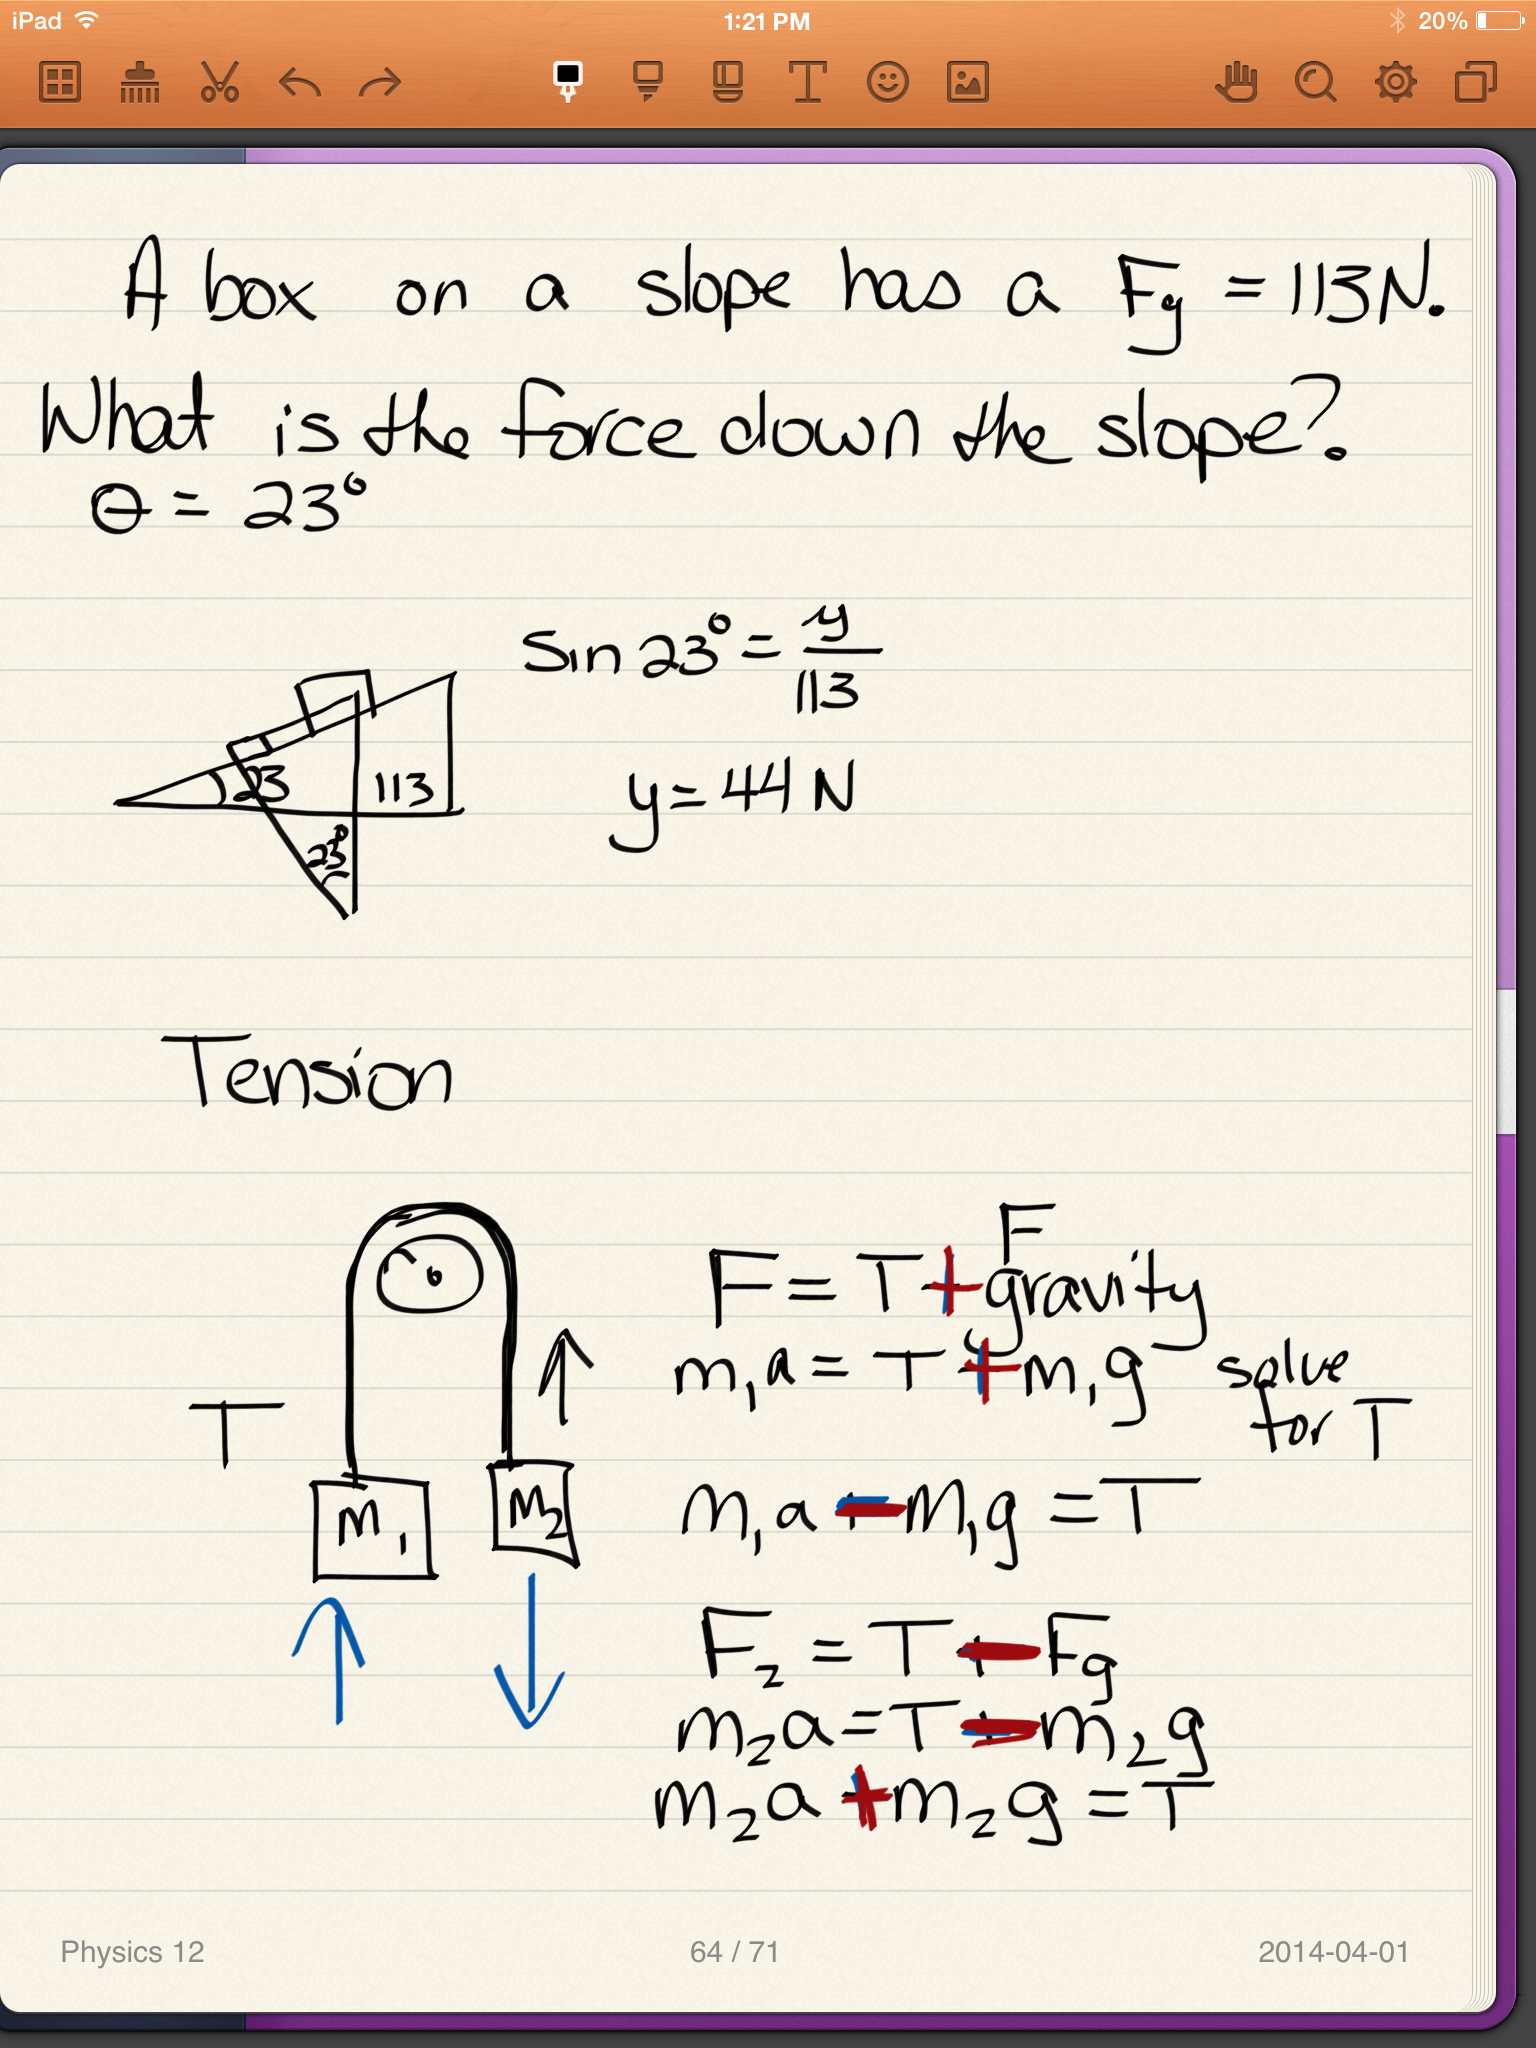 iPad 1:21 PM 20%
A box on a slope has a Fg = 113N.
What is the force down the slope?
θ = 23°
sin 23° = y/113
23 113
y = 44 N
23°
Tension
F
F = T + gravity
m₁a = T + m₁g solve
T for T
m₁ m₂ m₁a - m₁g = T
F₂ = T - Fg
m₂a = T - m₂g
m₂a + m₂g = T
Physics 12 64 / 71 2014-04-01